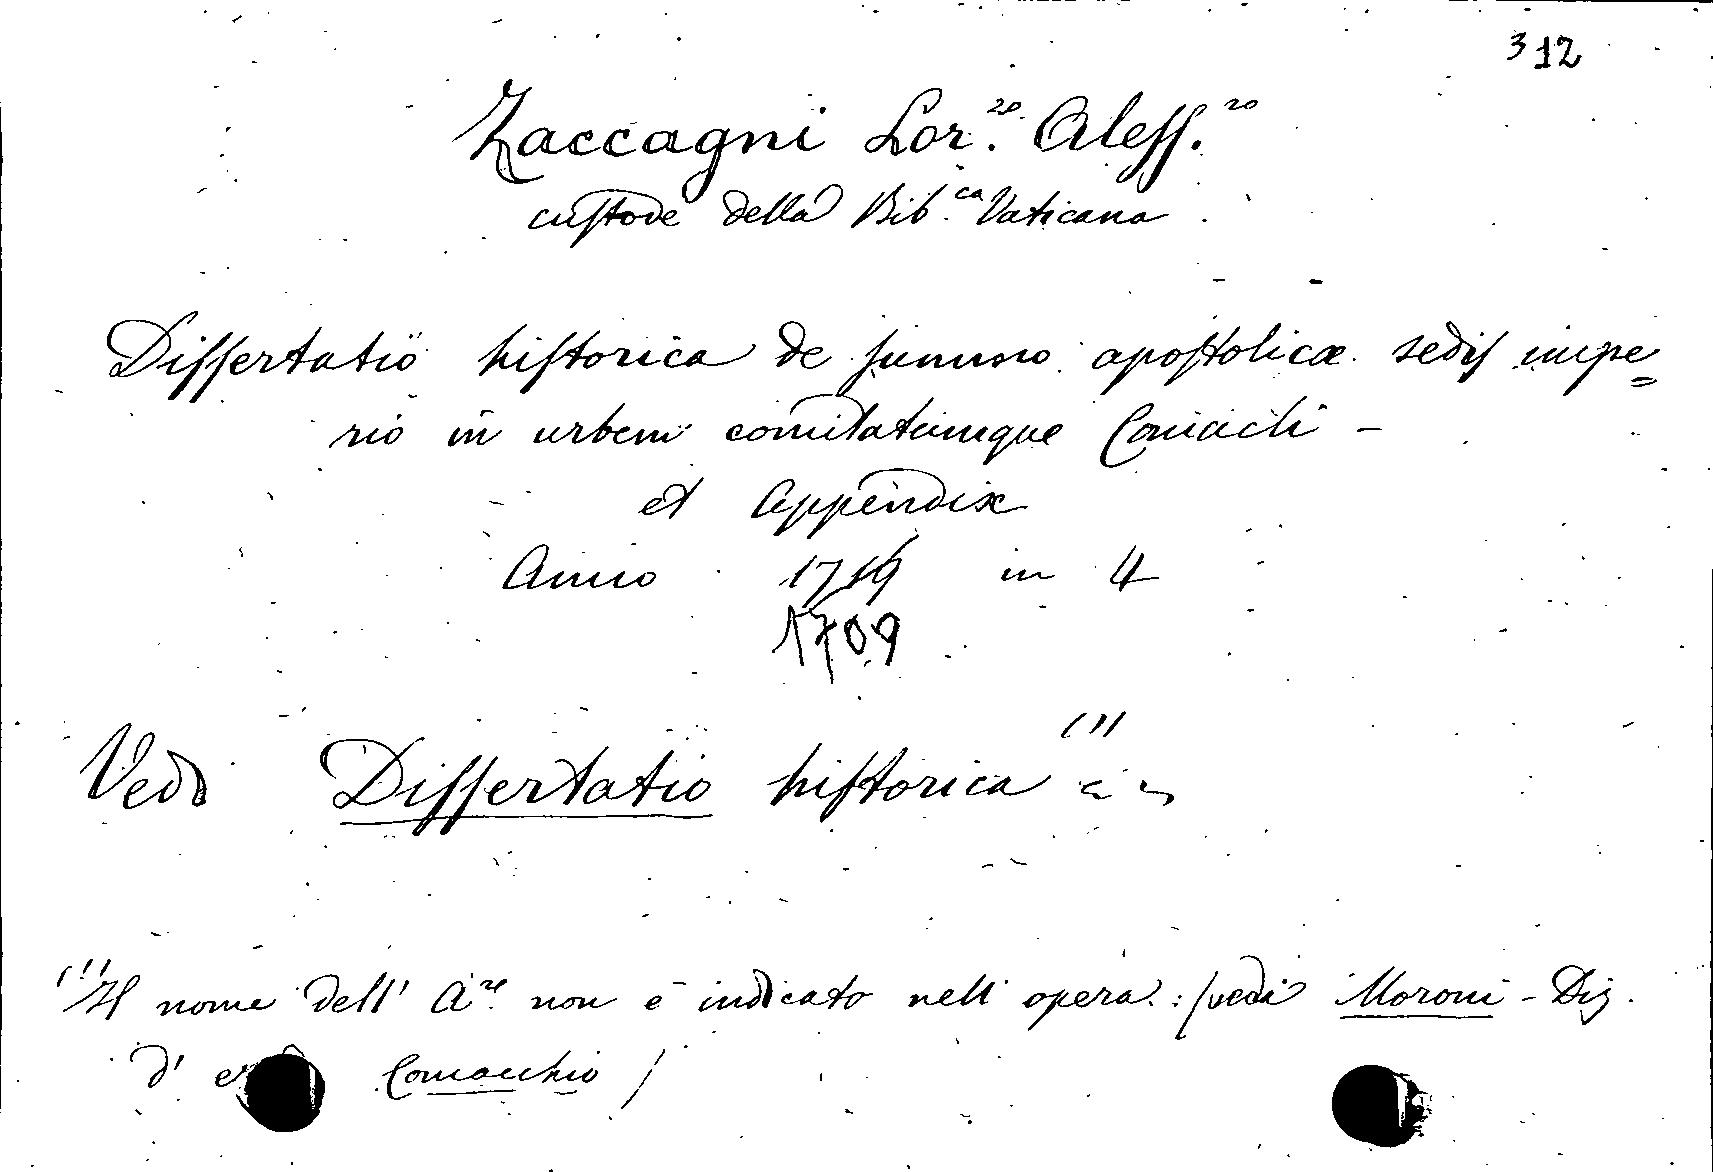 312
Zaccagni Lor.zo Aless.ro
custode della Bib.ca Vaticana
Dissertatio historica de summo apostolicæ sedis impe=
rio in urbem comitatumque Comacli -
et Appendix
Anno 1719 in 4
1709
Vedi Dissertatio historica (1)
(1) Il nome dell' A.re non è indicato nell' opera: (vedi Moroni - Diz.
d' Comacchio)